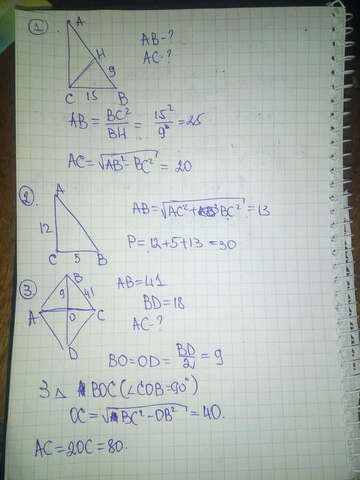 1.
A
H
9
C 15 B
AB-?
AC-?
AB = BC²/BH = 15²/9 = 25
AC = √AB² - BC² = 20
2.
A
12
C 5 B
AB = √AC² + BC² = 13
P = 12+5+13 = 30
3
B
9 41
A O C
D
AB = 41
BD = 18
AC-?
BO = OD = BD/2 = 9
3 △ BOC (∠COB = 90°)
OC = √BC² - OB² = 40.
AC = 2OC = 80.